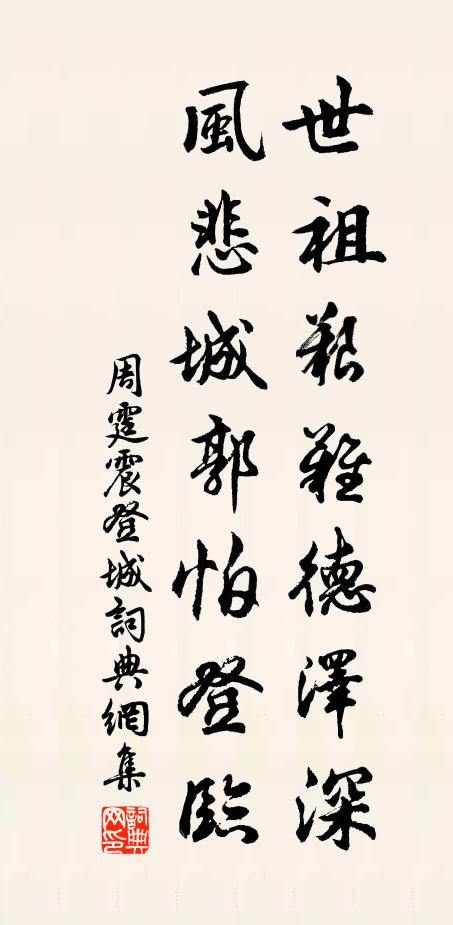 世祖艱難德澤深
風悲城郭怕登臨
周霆震登城詞典網集
詞典網印